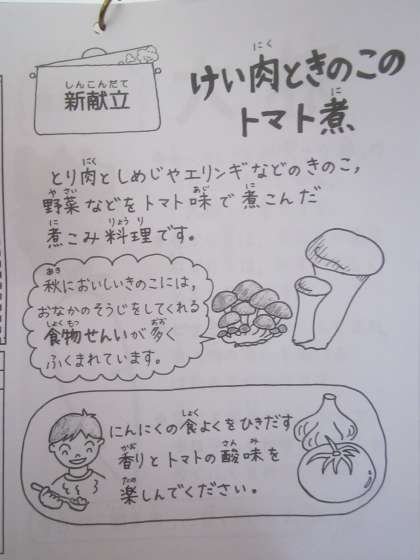 しんこんだて
新献立
にく
けい肉ときのこの
に
トマト煮
にく
とり肉としめじやエリンギなどのきのこ,
やさい あじ に
野菜などをトマト味で煮こんだ
に りょうり
煮こみ料理です。
あき
秋においしいきのこには,
おなかのそうじをしてくれる
しょくもつ おお
食物せんいが多く
ふくまれています。
しょく
にんにくの食よくをひきだす
かお さんみ
香りとトマトの酸味を
たの
楽しんでください。